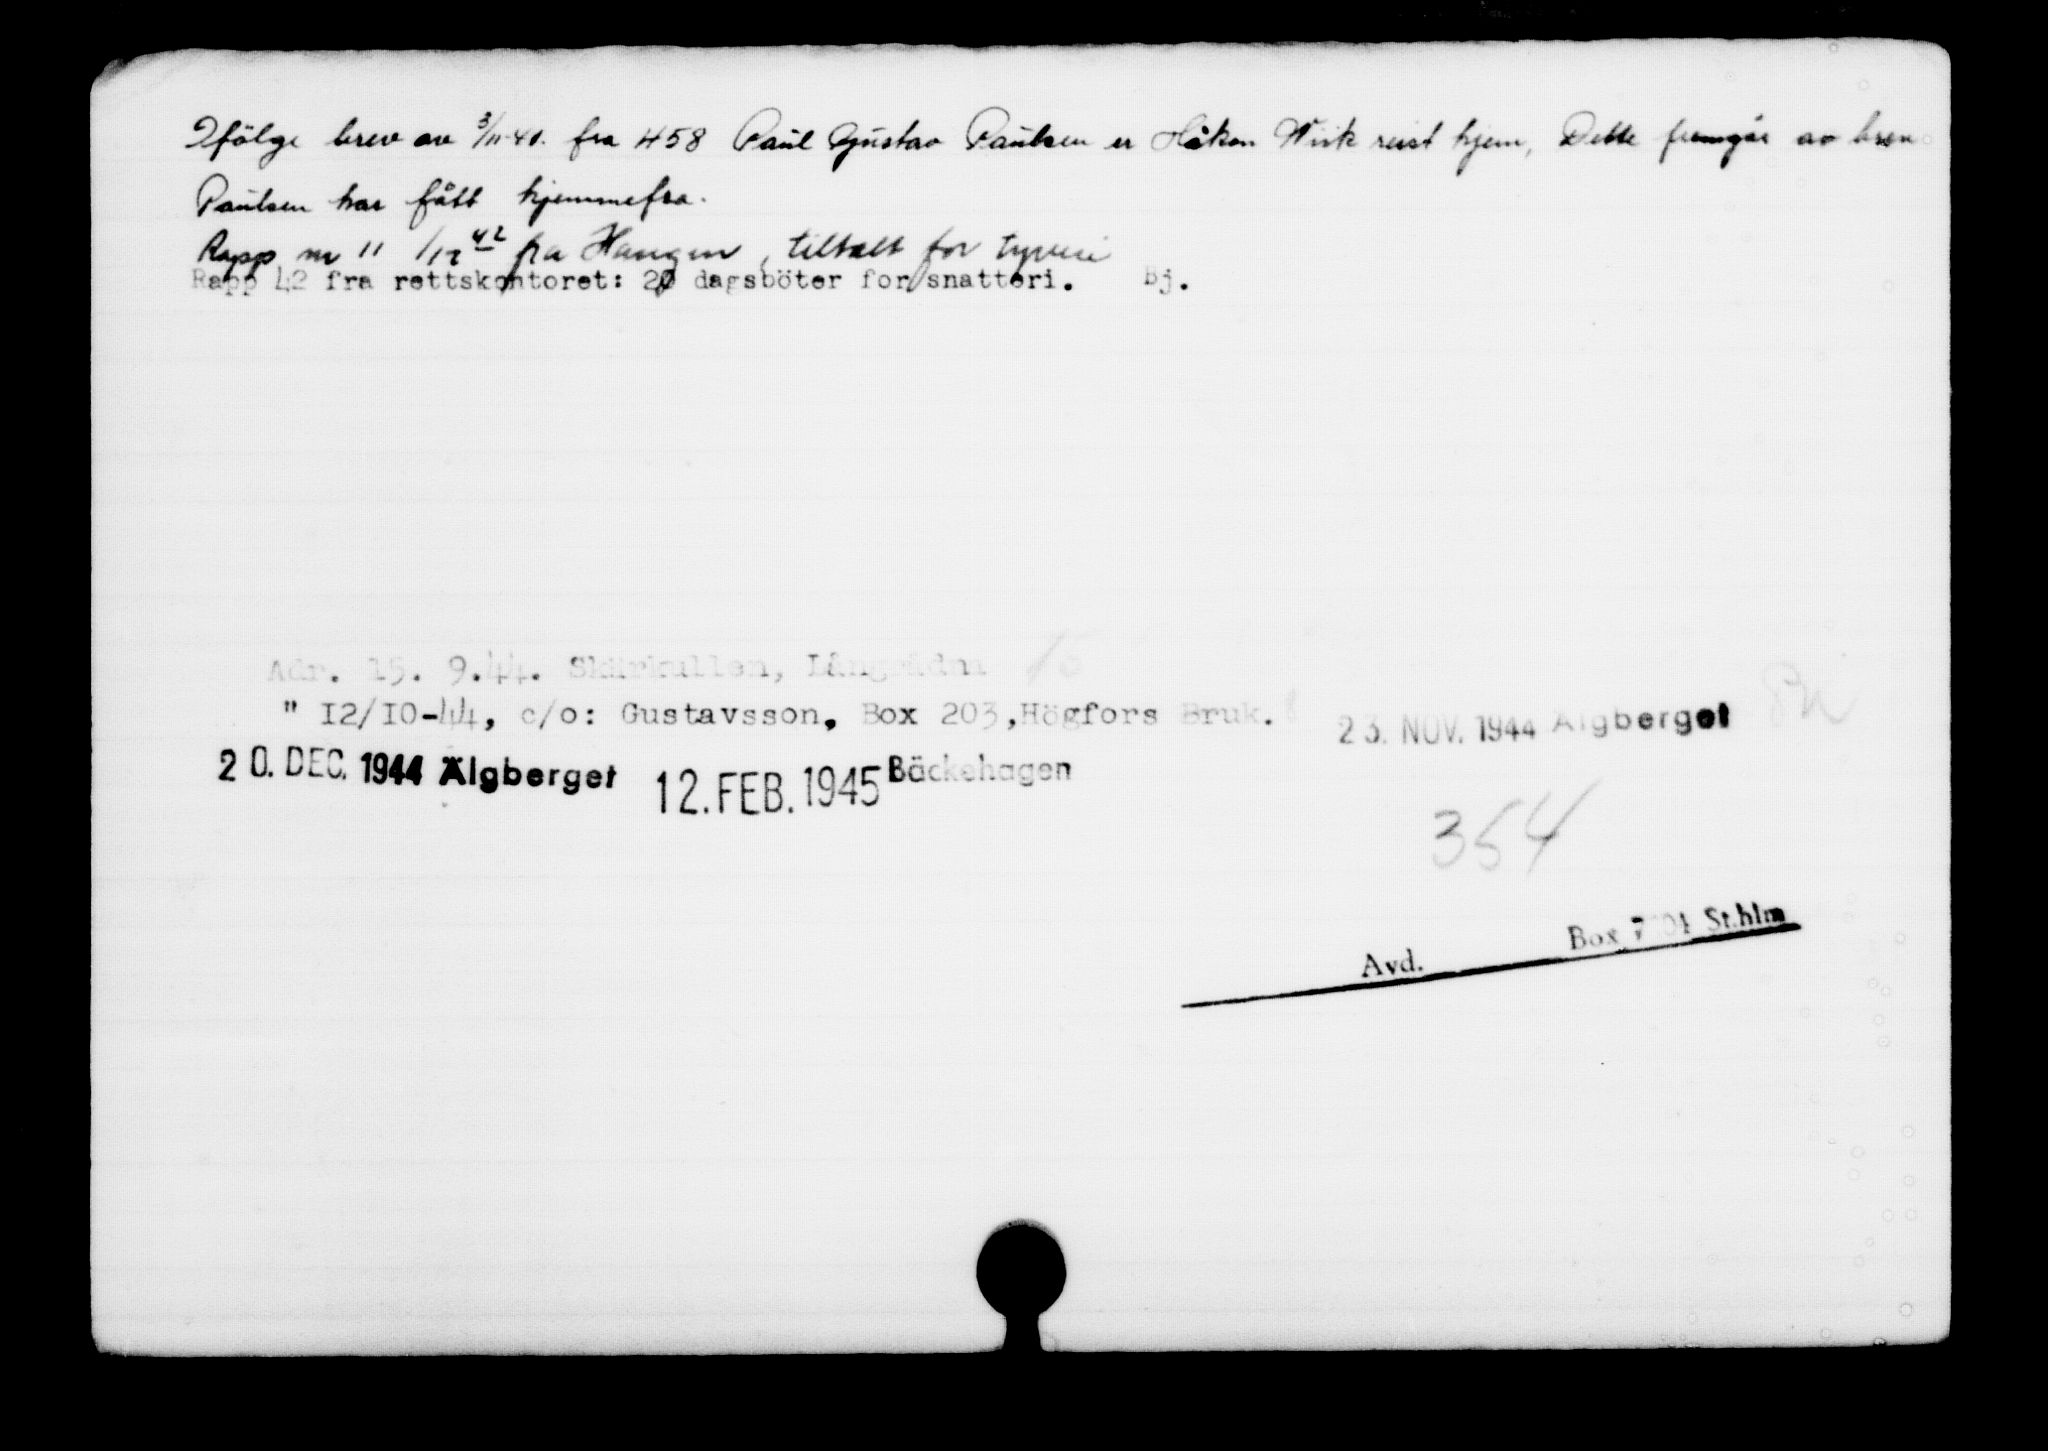 Ifölge brev av 3/11-40. fra 458 Paul Gustav Paulsen er Håkon Wiik reist hjem, Dette fremgår av brev
Paulsen har fått hjemmefra.
Rapp nr 11 1/12 42 fra Haugen, tiltalt for tyveri
Rapp 42 fra rettskontoret: 20 dagsböter for snatteri. Bj.
Adr. 15. 9.44. Skärkullen,
" I2/IO-44, c/o: Gustavsson, Box 203,Högfors Bruk.
23. NOV. 1944 Älgberget
20. DEC. 1944 Älgberget 12. FEB. 1945 Bäckehagen
354
Avd. Box St.hlm